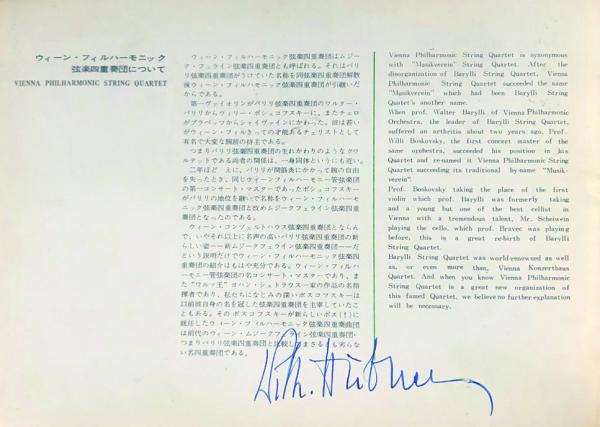 ウィーン・フィルハーモニック
弦楽四重奏団について
VIENNA PHILHARMONIC STRING QUARTET
ウィーン・フィルハーモニック弦楽四重奏団はムジー
ク・フェライン弦楽四重奏団とも呼ばれる。それはバリ
リ弦楽四重奏団がうけていた名称を同弦楽四重奏団解散
後ウィーン・フィルハーモニック弦楽四重奏団が引継いだ
からである。
第一ヴァイオリンがバリリ弦楽四重奏団のワルター・
バリリからヴィリー・ボシュコフスキーに、またチェロ
がブラベッツからシャイヴァインにかわった。彼は若い
がウィーン・フィルきっての才能あるチェリストとして
有名で大変な腕前の持主である。
つまりバリリ弦楽四重奏団の生れかわりのようなクワ
ルテットである両者の関係は、一身同体というにも近い。
二年ほど まえに、バリリが関節炎にかかって腕の自由
を失ったとき、同じウィーン・フィルハーモニー管弦楽団
の第一コンサート・マスターであったボシュコフスキー
がバリリの地位を継いで名称をウィーン・フィルハーモニ
ック弦楽四重奏団と改めムジークフェライン弦楽四重奏
団となったのである。
ウィーン・コンツェルトハウス弦楽四重奏団とならん
で、いやそれ以上に名声の高いバリリ弦楽四重奏団の新
らしい姿——新ムジークフェライン弦楽四重奏団——だ
という説明だけでウィーン・フィルハーモニック弦楽四
重奏団の紹介はもはや充分である。ウィーン・フィルハ
ーモニー管弦楽団の名コンサート・マスターであり、ま
た“ワルツ王”ヨハン・シュトラウス一家の作品の名指
揮者であり、私たちになじみの深いボスコフスキーは
以前彼自身の名を冠した弦楽四重奏団を主宰していたこ
ともある。そのボスコフスキーが新らしいボス(！)に
就任したウィーン・フィルハーモニック弦楽四重奏曲団
は前代のウィーン・ムジークフェライン弦楽四重奏団・
つまりバリリ弦楽四重奏団と比較しまさるとも劣らな
い名四重奏団である。
Vienna Philharmonic String Quartet is synonymous
with "Musikverein" String Quartet. After the
disorganization of Barylli String Quartet, Vienna
Philharmonic String Quartet succeeded the name
"Musikverein" which had been Barylli String
Quartet's another name.
When prof. Walter Barylli of Vienna Philharmonic
Orchestra, the leader of Barylli String Quartet,
suffered an arthritis about two years ago, Prof.
Willi Boskovsky, the first concert master of the
same orchestra, succeeded his position in his
Quartet and re-named it Vienna Philharmonic String
Quartet succeeding its traditional by-name "Musik-
verein".
Prof. Boskovsky taking the place of the first
violin which prof. Barylli was formerly taking
and a young but one of the best cellist in
Vienna with a tremendous talent, Mr. Scheiwein
playing the cello, which prof. Bravec was playing
before, this is a great re-birth of Barylli
String Quartet.
Barylli String Quartet was world-renowned as well
as, or even more than, Vienna Konzerthaus
Quartet. And when you know Vienna Philharmonic
String Quartet is a great new organization of
this famed Quartet, we believe no further explanation
will be necessary.
Wilh. Hübner